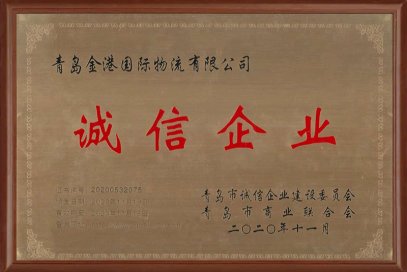 青岛金港国际物流有限公司
诚信企业
证书证号：20200532075
青岛市诚信企业建设委员会
青岛市商业联合会
二〇二〇年十一月